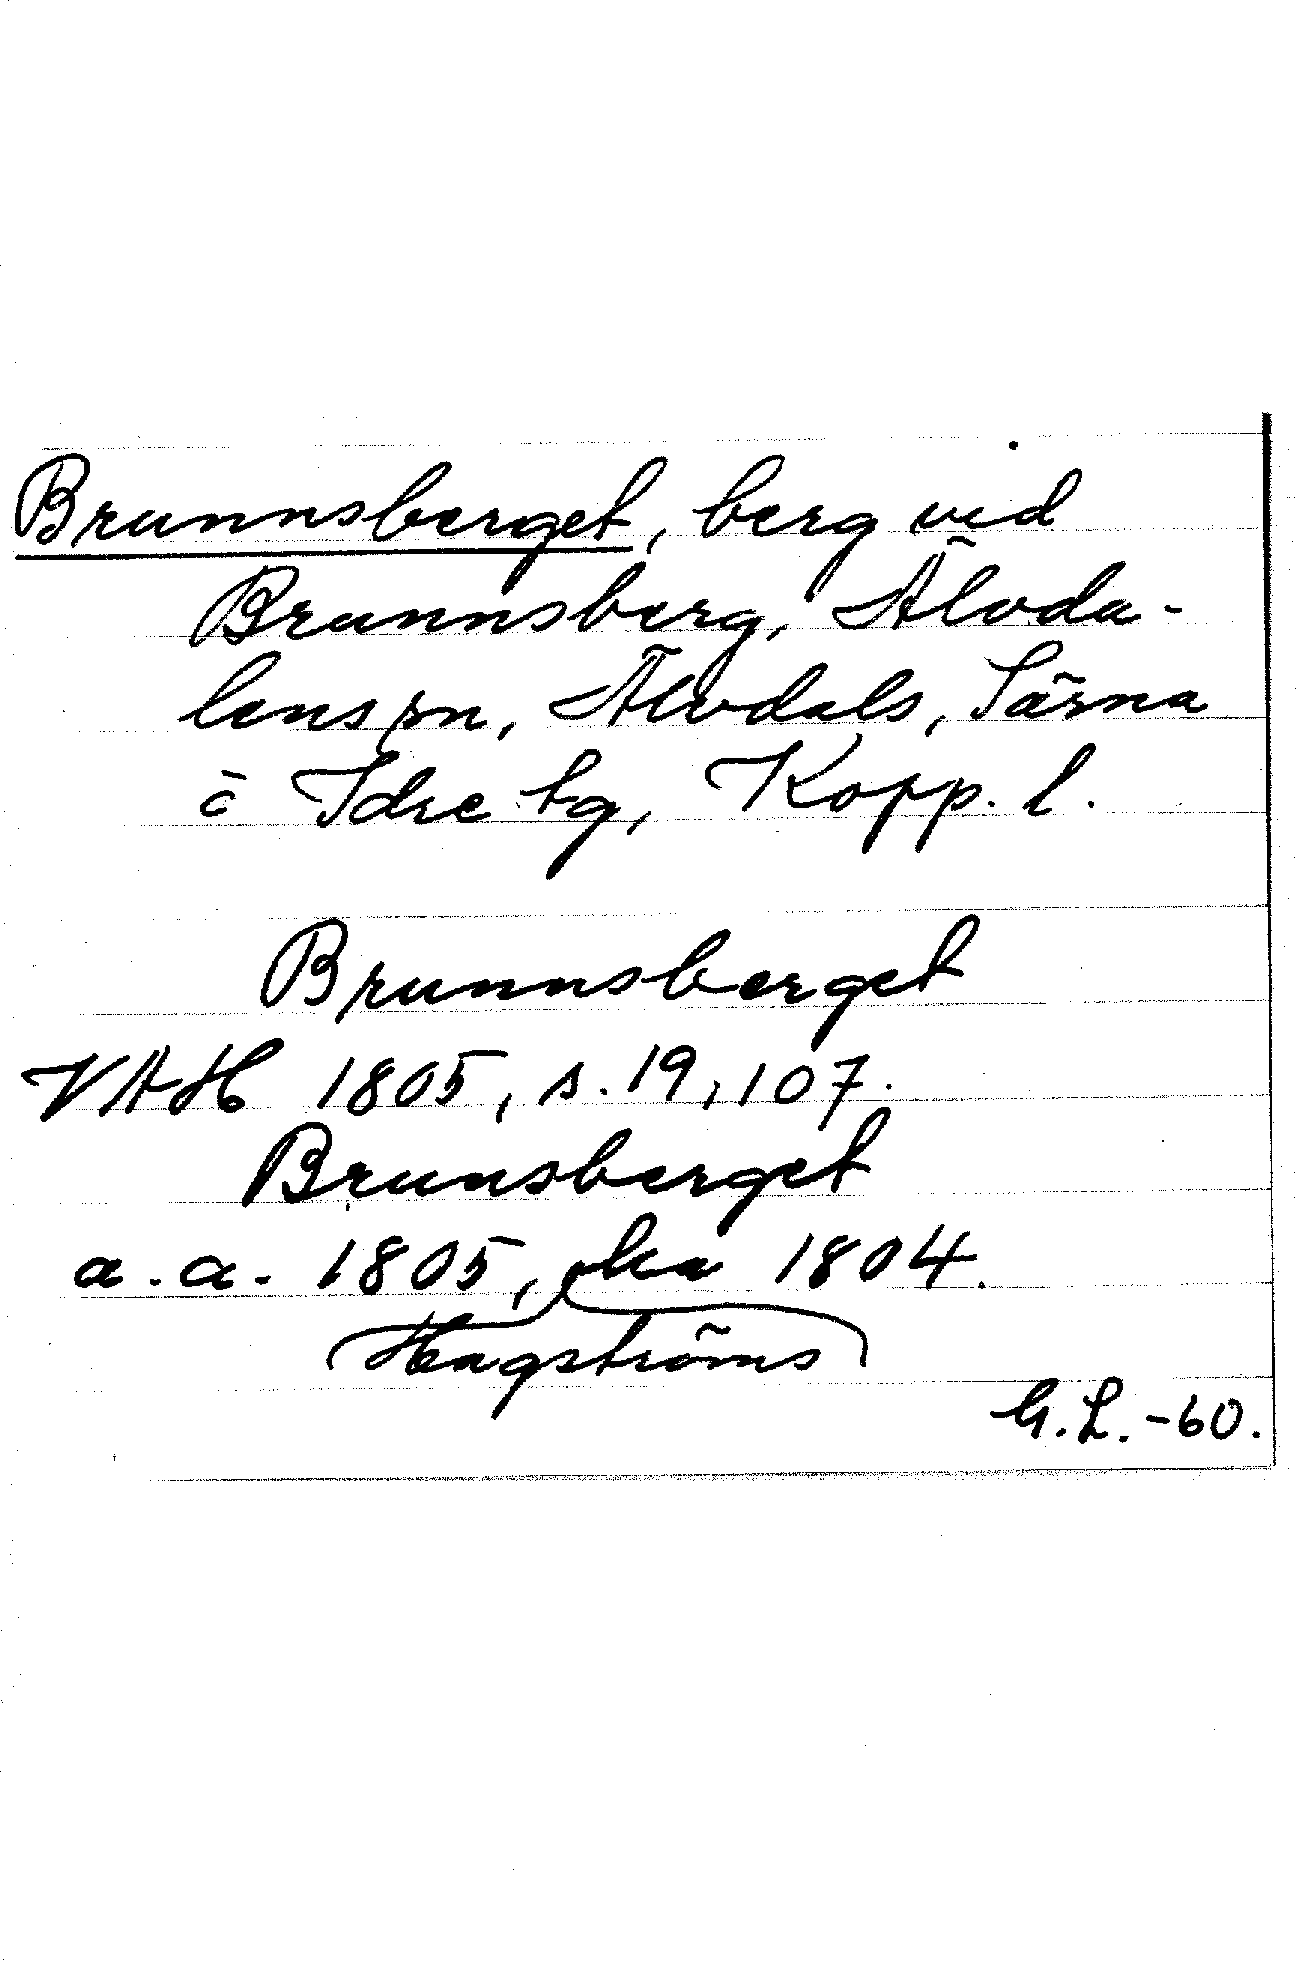 Brunnsberget, berg vid
Brunnsberg, Älvda-
lens sn, Älvdals, Särna
o Idre tg, Kopp. l.
Brunnsberget
VAH 1805, s. 19, 107.
Brunsberget
a. a. 1805, ka 1804.
Hagströms
G.L. -60.